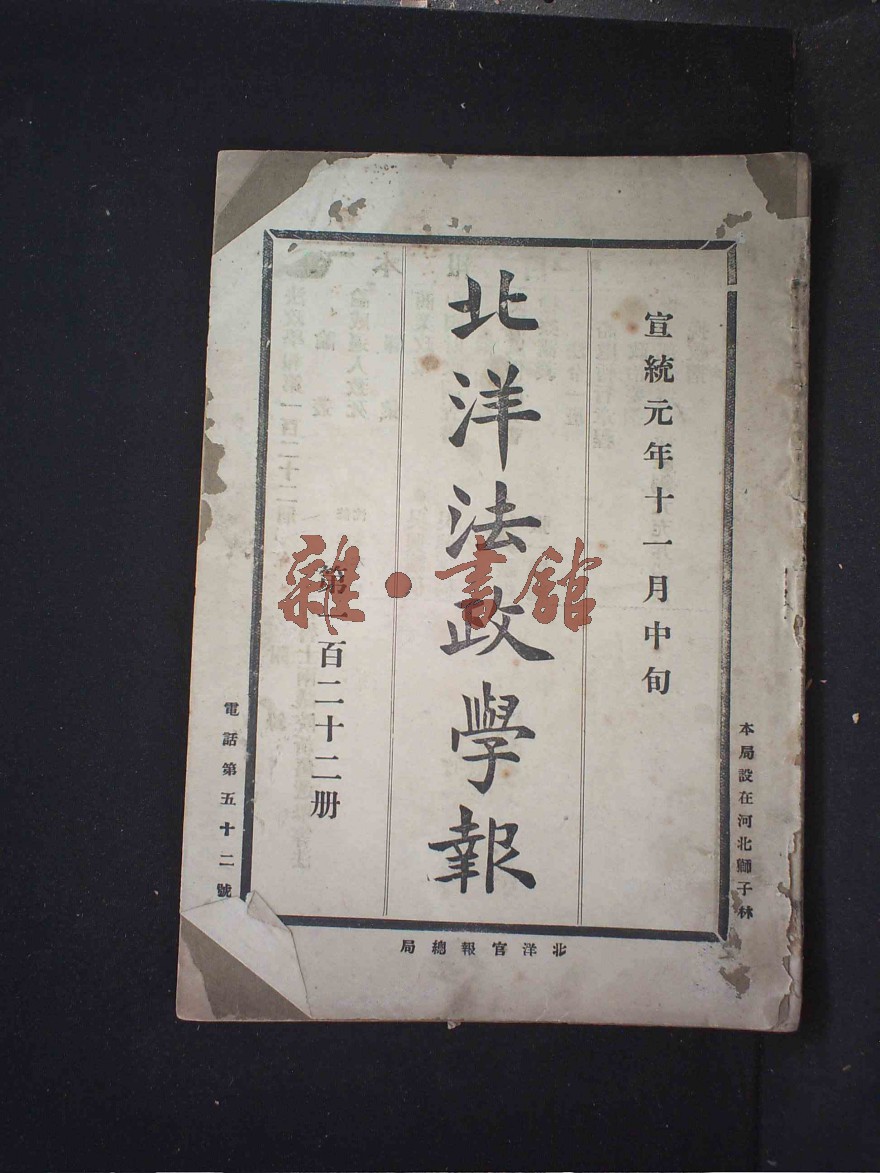 宣統元年十一月中旬
北洋法政學報
第一百二十二册
本局設在河北獅子林
電話第五十二號
北洋官報總局
雜·書館